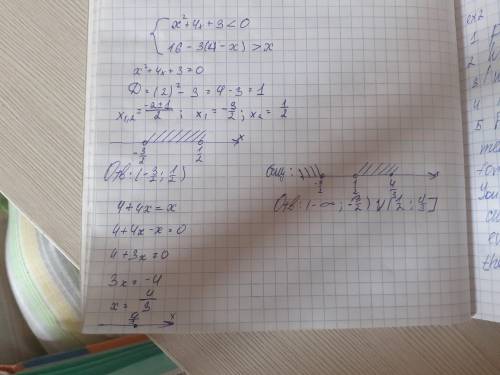 x²+4x+3<0
16-3(4-x)>x
x²+4x+3=0
D=(2)²-3=4-3=1
x₁,₂=-2±1/2; x₁=-3/2; x₂=1/2
-3/2 1/2 x
Отв: (-3/2; 1/2)
4+4x=x
4+4x-x=0
4+3x=0
3x=-4
x=4/3
4/3 x
1/2 4/3 x
Отв: (-∞; -3/2) ∨ [1/2; 4/3]
ex2
1
2
3
4
5